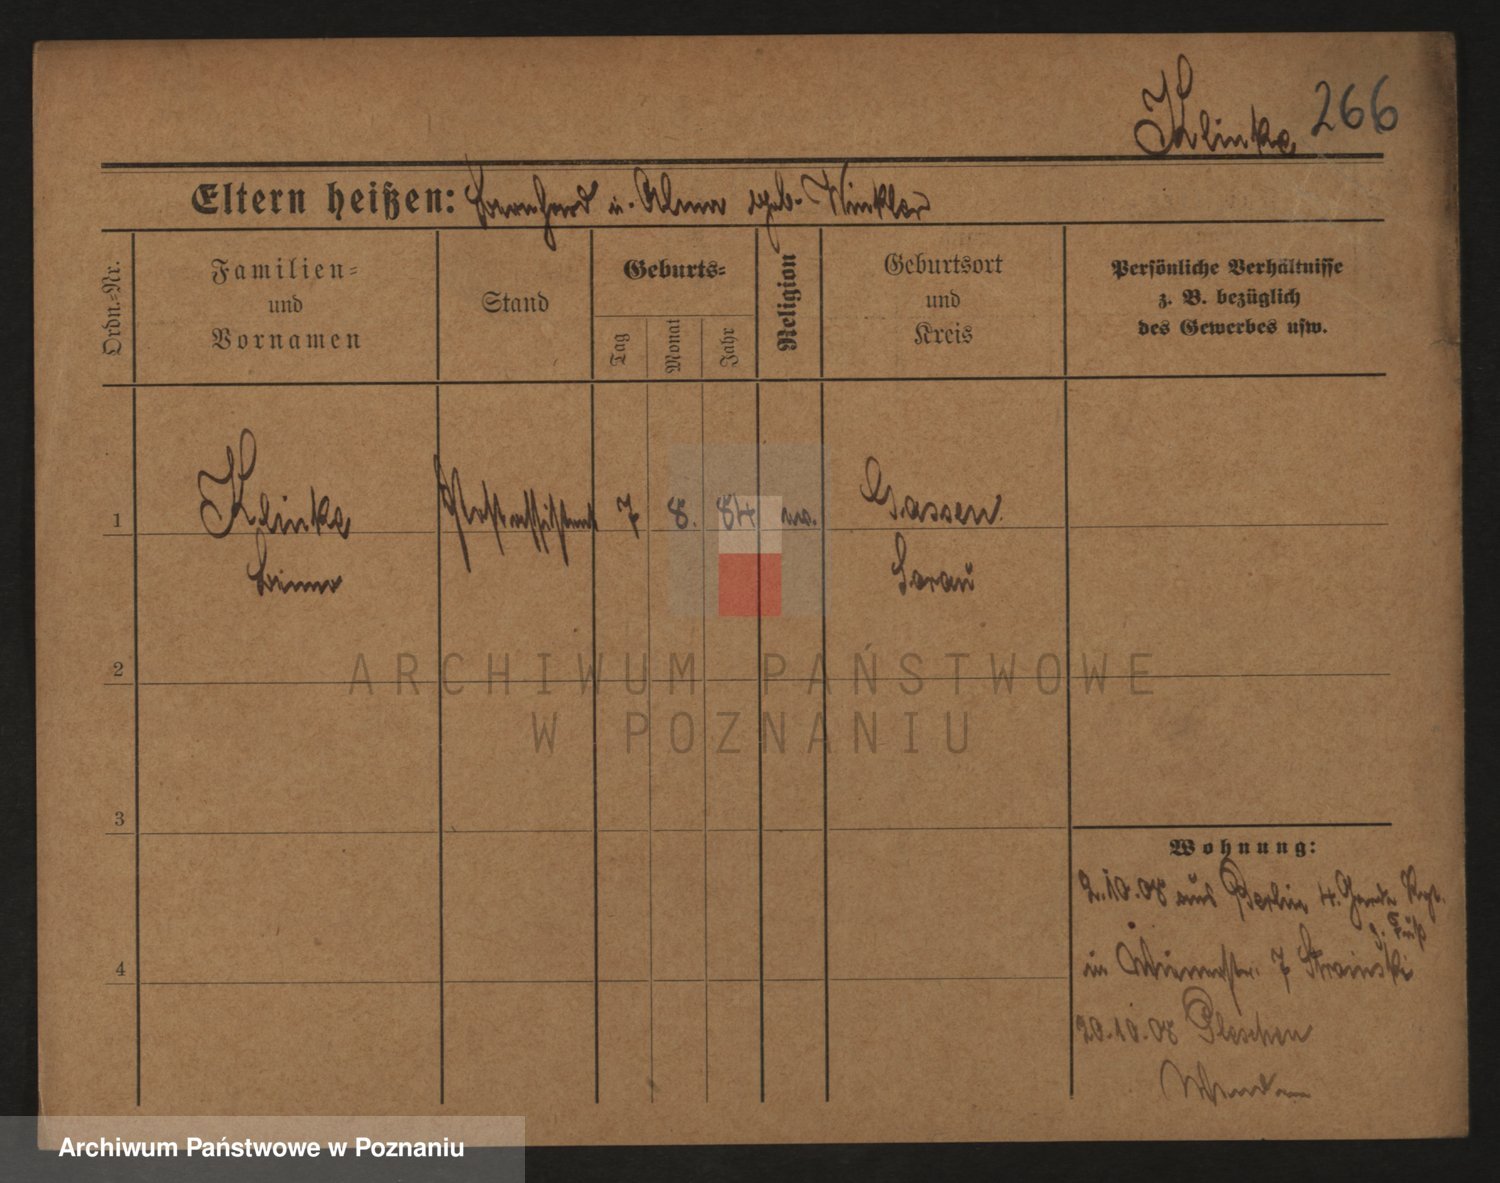 Klinke 266
Eltern heißen: Bernhard u. Alma geb. Winkler
Ordn.=Nr.
Familien=
und
Vornamen
Stand
Geburts=
Tag
Monat
Jahr
Religion
Geburtsort
und
Kreis
Persönliche Verhältnisse
z. B. bezüglich
des Gewerbes usw.
1 Klinke Postassistent 7 8. 84 ev. Gassen
Benno Sorau
2
ARCHIWUM PAŃSTWOWE
W POZNANIU
3
Wohnung:
2.10.08 aus Berlin 4. Garde Regt.
z. Fuß
4
in 7
20.10.08 Pleschen
Archiwum Państwowe w Poznaniu